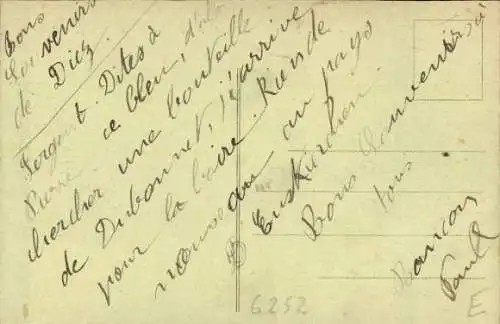 Bons
Souvenirs
de Diez
Sergent Dites à
Pierre ce bleu, d'aller
chercher une bouteille
de Dubonnet, j'arrive
pour la boire. Rien de
nouveau au pays
Euskirchen
Bons Souvenirs à
tous
Paul
6252
E